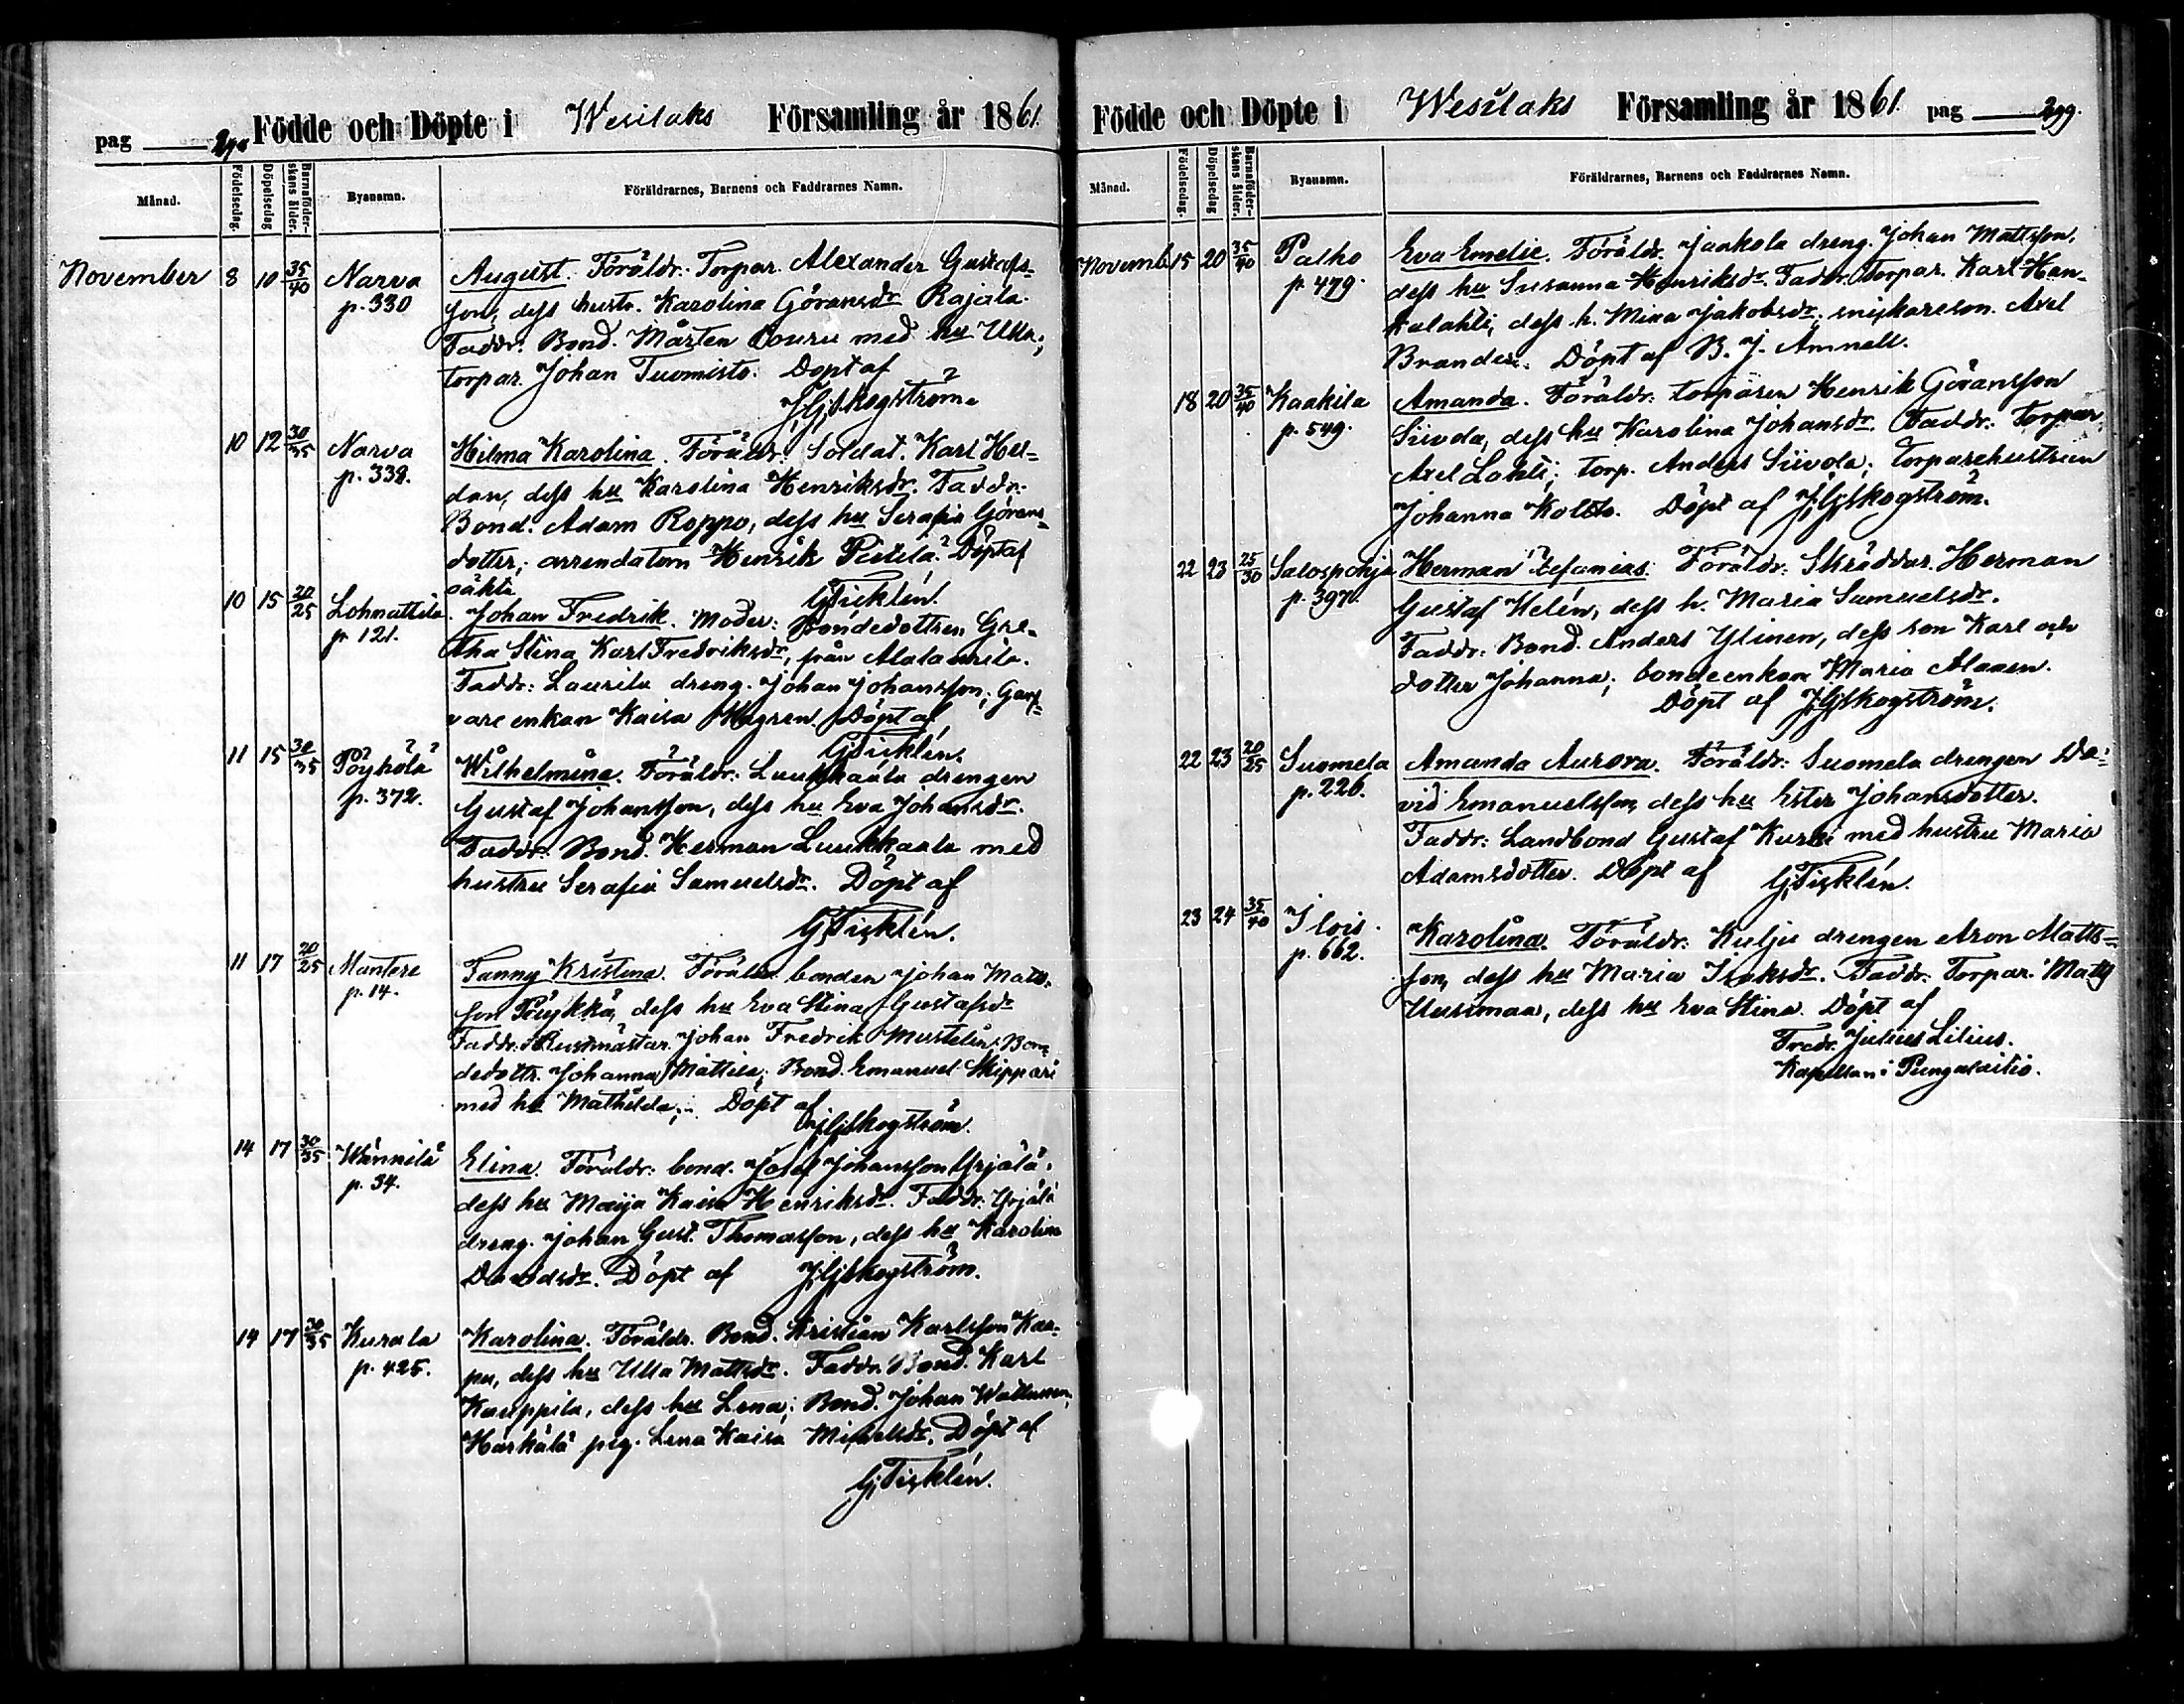 pag Födde och Döpte i Wesilaks Församling år 1861
Månad. Födelsedag. Döpelsedag Barnaföderskans ålder. Byanamn. Föräldrarnes, Barnens och Faddrarnes Namn.
November 8 10 35/40 Narva August. Föräldr. Torpar. Alexander Gustafs-
p. 330 son, dess hustr. Karolina Göransdr Rajala.
Faddr: Bond. Mårten med hu Ulla;
torpar. Johan Tuomisto. Döpt af
Skogström.
10 12 30/35 Narva Hilma Karolina. Föräldr: Soldat. Karl Hel-
p. 338. dan, dess hu Karolina Henriksdr. Faddr:
Bond. Adam Roppo, dess hu Serafia Görans-
dotter; arrendatorn Henrik Pietilä. Döpt af
oäkta G. Ticklén.
10 15 20/25 Lohnattila Johan Fredrik. Moder: Bondedottren Gre-
p. 121. tha Stina Karl Fredriksdr, från
Faddr: Laurila dreng. Johan Johansson; Garf-
vare enkan Kaisa Döpt af
G. Ticklén.
11 15 30/35 Pöyhölä Wilhelmina. Föräldr: Luukkaala drengen
p. 372. Gustaf Johansson, dess hu Eva Johansdr.
Faddr: Bond. Herman Luukkaala med
hustru Serafia Samuelsdr. Döpt af
G. Ticklén.
11 17 20/25 Mantere Fanny Kristina. Föräldr: bonden Johan Matts-
p. 14. son dess hu Eva Stina Gustafsdr
Faddr: Rustmästar. Johan Fredrik Mustelin; Bon-
dedottr. Johanna Mattila; Bond. Emanuel Skippari
med hu Mathilda; Döpt af
Skogström.
14 17 30/35 Wännilä Elina. Föräldr: bond. Josef Johansson Yrjälä.
p. 34. dess hu Maija Kaisa Henriksdr. Faddr: Yrjälä
dreng. Johan Gust. Thomasson, dess hu Karolina
Davidsdr. Döpt af Skogström.
14 17 30/35 Kurala Karolina. Föräldr. Bond. Kristian Karlsson Kaa-
p. 425. pu, dess hu Ulla Mattsdr. Faddr. Bond. Karl
Kauppila, dess hu Lena; Bond. Johan
Härkälä pig. Lena Kaisa Döpt af
G. Ticklén.
Födde och Döpte i Wesilaks Församling år 1861 pag 299.
Månad. Födelsedag. Döpelsedag Barnaföderskans ålder. Byanamn. Föräldrarnes, Barnens och Faddrarnes Namn.
Novemb. 15 20 35/40 Palho Eva Emelie. Föräldr. Jaakola dreng. Johan Mattsson,
p. 479. dess hu Susanna Henriksdr. Faddr. Torpar. Karl Han-
kalahti, dess h. Mina Jakobsdr; snickareson. Axel
Brander. Döpt af B. J. Amnell.
18 20 35/40 Kaakila Amanda. Föräldr: torparen Henrik Göransson
p. 549. Siivola, dess hu Karolina Johansdr. Faddr: Torpar.
Axel Lahti; torp. Anders Siivola; Torparehustrun
Johanna Döpt af Skogström.
22 23 25/30 Salospohja Herman Zefanias. Föräldr: Skräddar. Herman
p. 397. Gustaf Helén, dess h. Maria Samuelsdr.
Faddr: Bond. Anders Ylinen, dess son Karl och
dotter Johanna; bondeenkan Maria Alanen.
Döpt af Skogström.
22 23 20/25 Suomela Amanda Aurora. Föräldr: Suomela drengen Da-
p. 226. vid Emanuelsson, dess hu Ester Johansdotter.
Faddr: Landbond Gustaf Kurki med hustru Maria
Adamsdotter. Döpt af G. Ticklén.
23 24 35/40 Ilois Karolina. Föräldr: Kulju drengen Aron Matts-
p. 662. son, dess hu Maria Isaksdr. Faddr: Torpar. Matts
Uusimaa, dess hu Eva Stina. Döpt af
Fredr. Julius Lilius.
Kapellan i Pungalaitio.